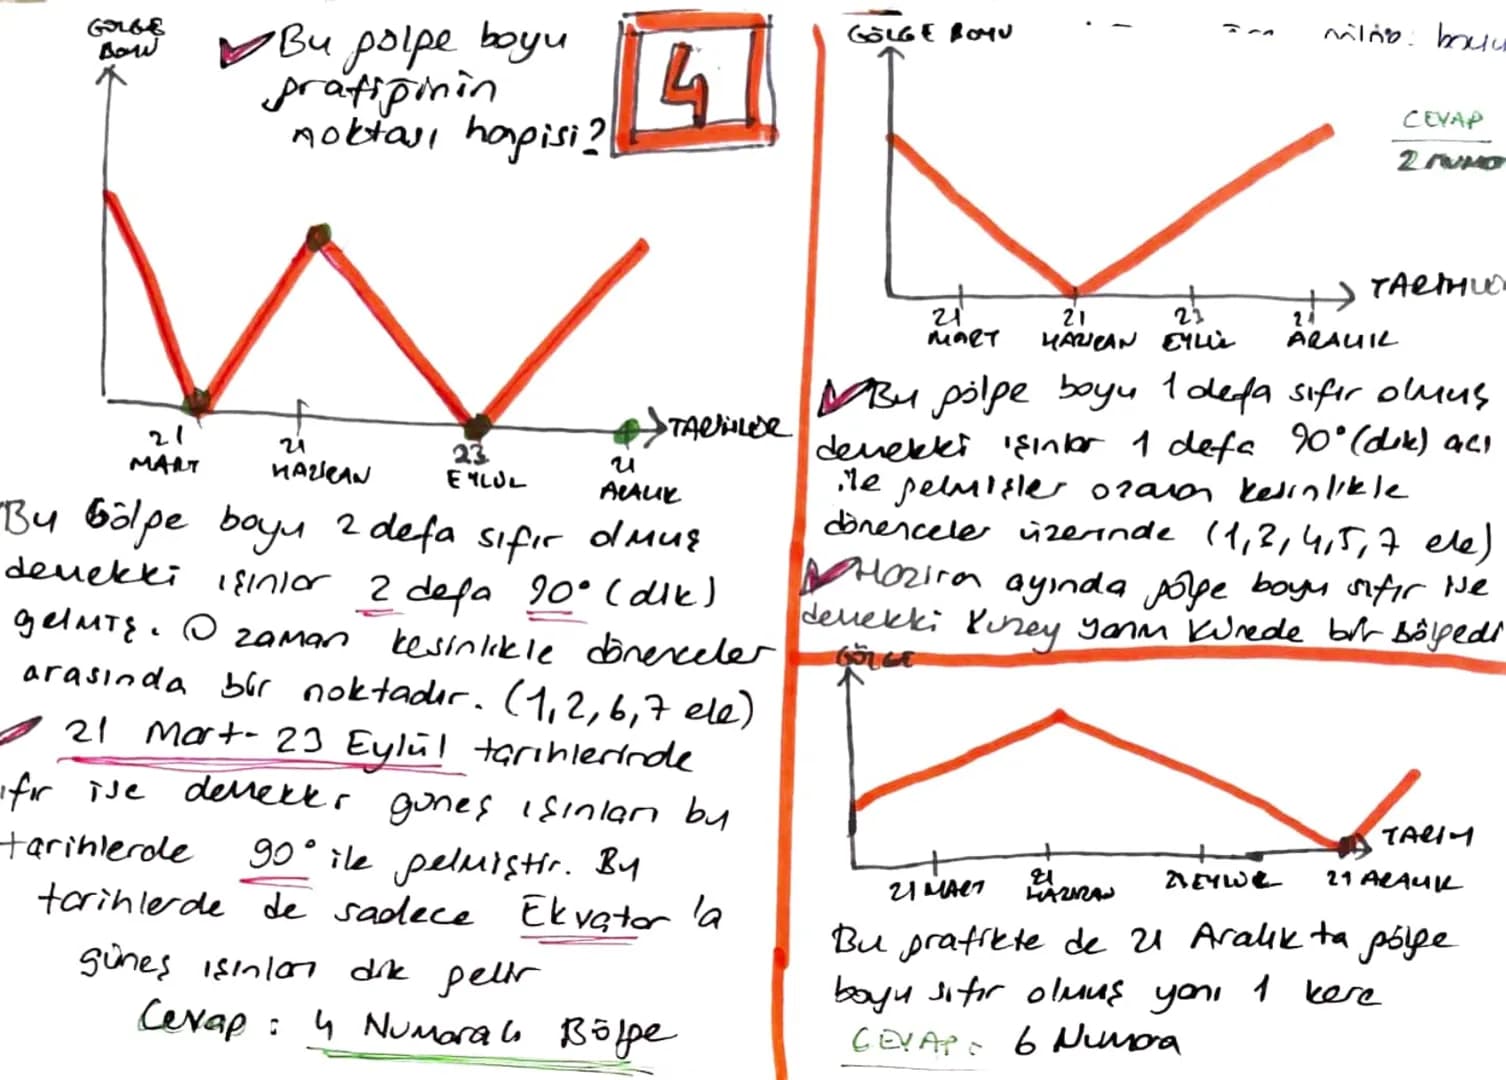 GÖLGE
BOYU
Bu gölge boyu
grafiğinin
noktası hangisi?
4
TARİHLER
21
MART
21
HAZİRAN
23
EYLÜL
21
ARALIK
Bu Gölge boyu 2 defa sıfır olmuş
demekki ışınlar 2 defa 90° (dik)
gelmiş. O zaman kesinlikle dönenceler
arasında bir noktadır. (1,2,6,7 ele)
21 Mart - 23 Eylül tarihlerinde
ıfır ise demekki güneş ışınları bu
tarihlerde 90° ile gelmiştir. Bu
tarihlerde de sadece Ekvator'a
güneş ışınları dik gelir
Cevap: 4 Numaralı Bölge
GÖLGE BOYU
CEVAP
2 NUMO
21
MART
21
HAZİRAN
23
EYLÜL
21
ARALIK
Bu gölge boyu 1 defa sıfır olmuş
demekki ışınlar 1 defa 90° (dik) açı
ile gelmişler o zaman kesinlikle
dönenceler üzerinde (1,3,4,5,7 ele)
Haziran ayında gölge boyu sıfır ise
demekki Kuzey yarım Kürede bir Bölgedi
GÖLGE
TARIH
21 MART
21
HAZIRAN
EYLÜL
21 ARALIK
Bu grafikte de 21 Aralık ta gölge
boyu sıfır olmuş yani 1 kere
CEVAP: 6 Numara